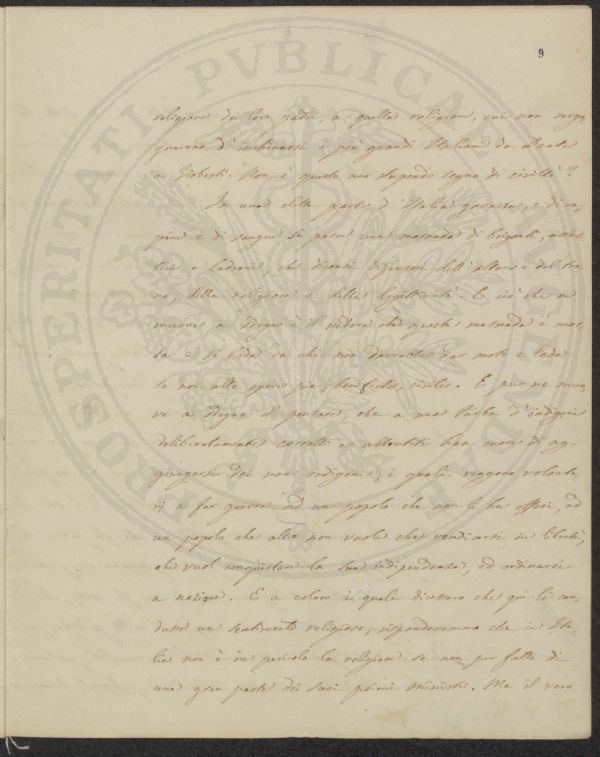 9
religione dei loro padri, a quella religione, cui non vergo-
gnarono d'inchinarsi i più grandi Italiani da Dante
a Gioberti. Non è questo uno stupendo segno di civiltà?
In una eletta parte d'Italia gavazza, e di ra-
pine e di sangue si pasce una masnada di briganti, assas-
sini e ladroni, che diconsi difensori dell'altare e del tro-
no, della religione e della legittimità. E ciò che ne
muove a sdegno è il vedere che questa masnada è mos-
sa e si loda da chi non dovrebbe dar moto e lode
se non alle opere pie, benefiche, civili. E pur ne muo-
ve a sdegno il pensare, che a una turba d'indigeni
deliberatamente corrotti e abbrutiti han cuore di ag-
giungersi dei non indigeni, i quali vengono volonta-
rj a far guerra ad un popolo che non li ha offesi, ad
un popolo che altro non vuole che vendicarsi in libertà,
che vuol conquistare la sua indipendenza, ed ordinarsi
a nazione. E a coloro i quali dicessero che qui li con-
dusse un sentimento religioso, risponderemmo che in Ita-
lia non è in pericolo la religione se non per fatto di
una gran parte dei suoi primi ministri. Ma il vero
PROSPERITATI PVBLICAE